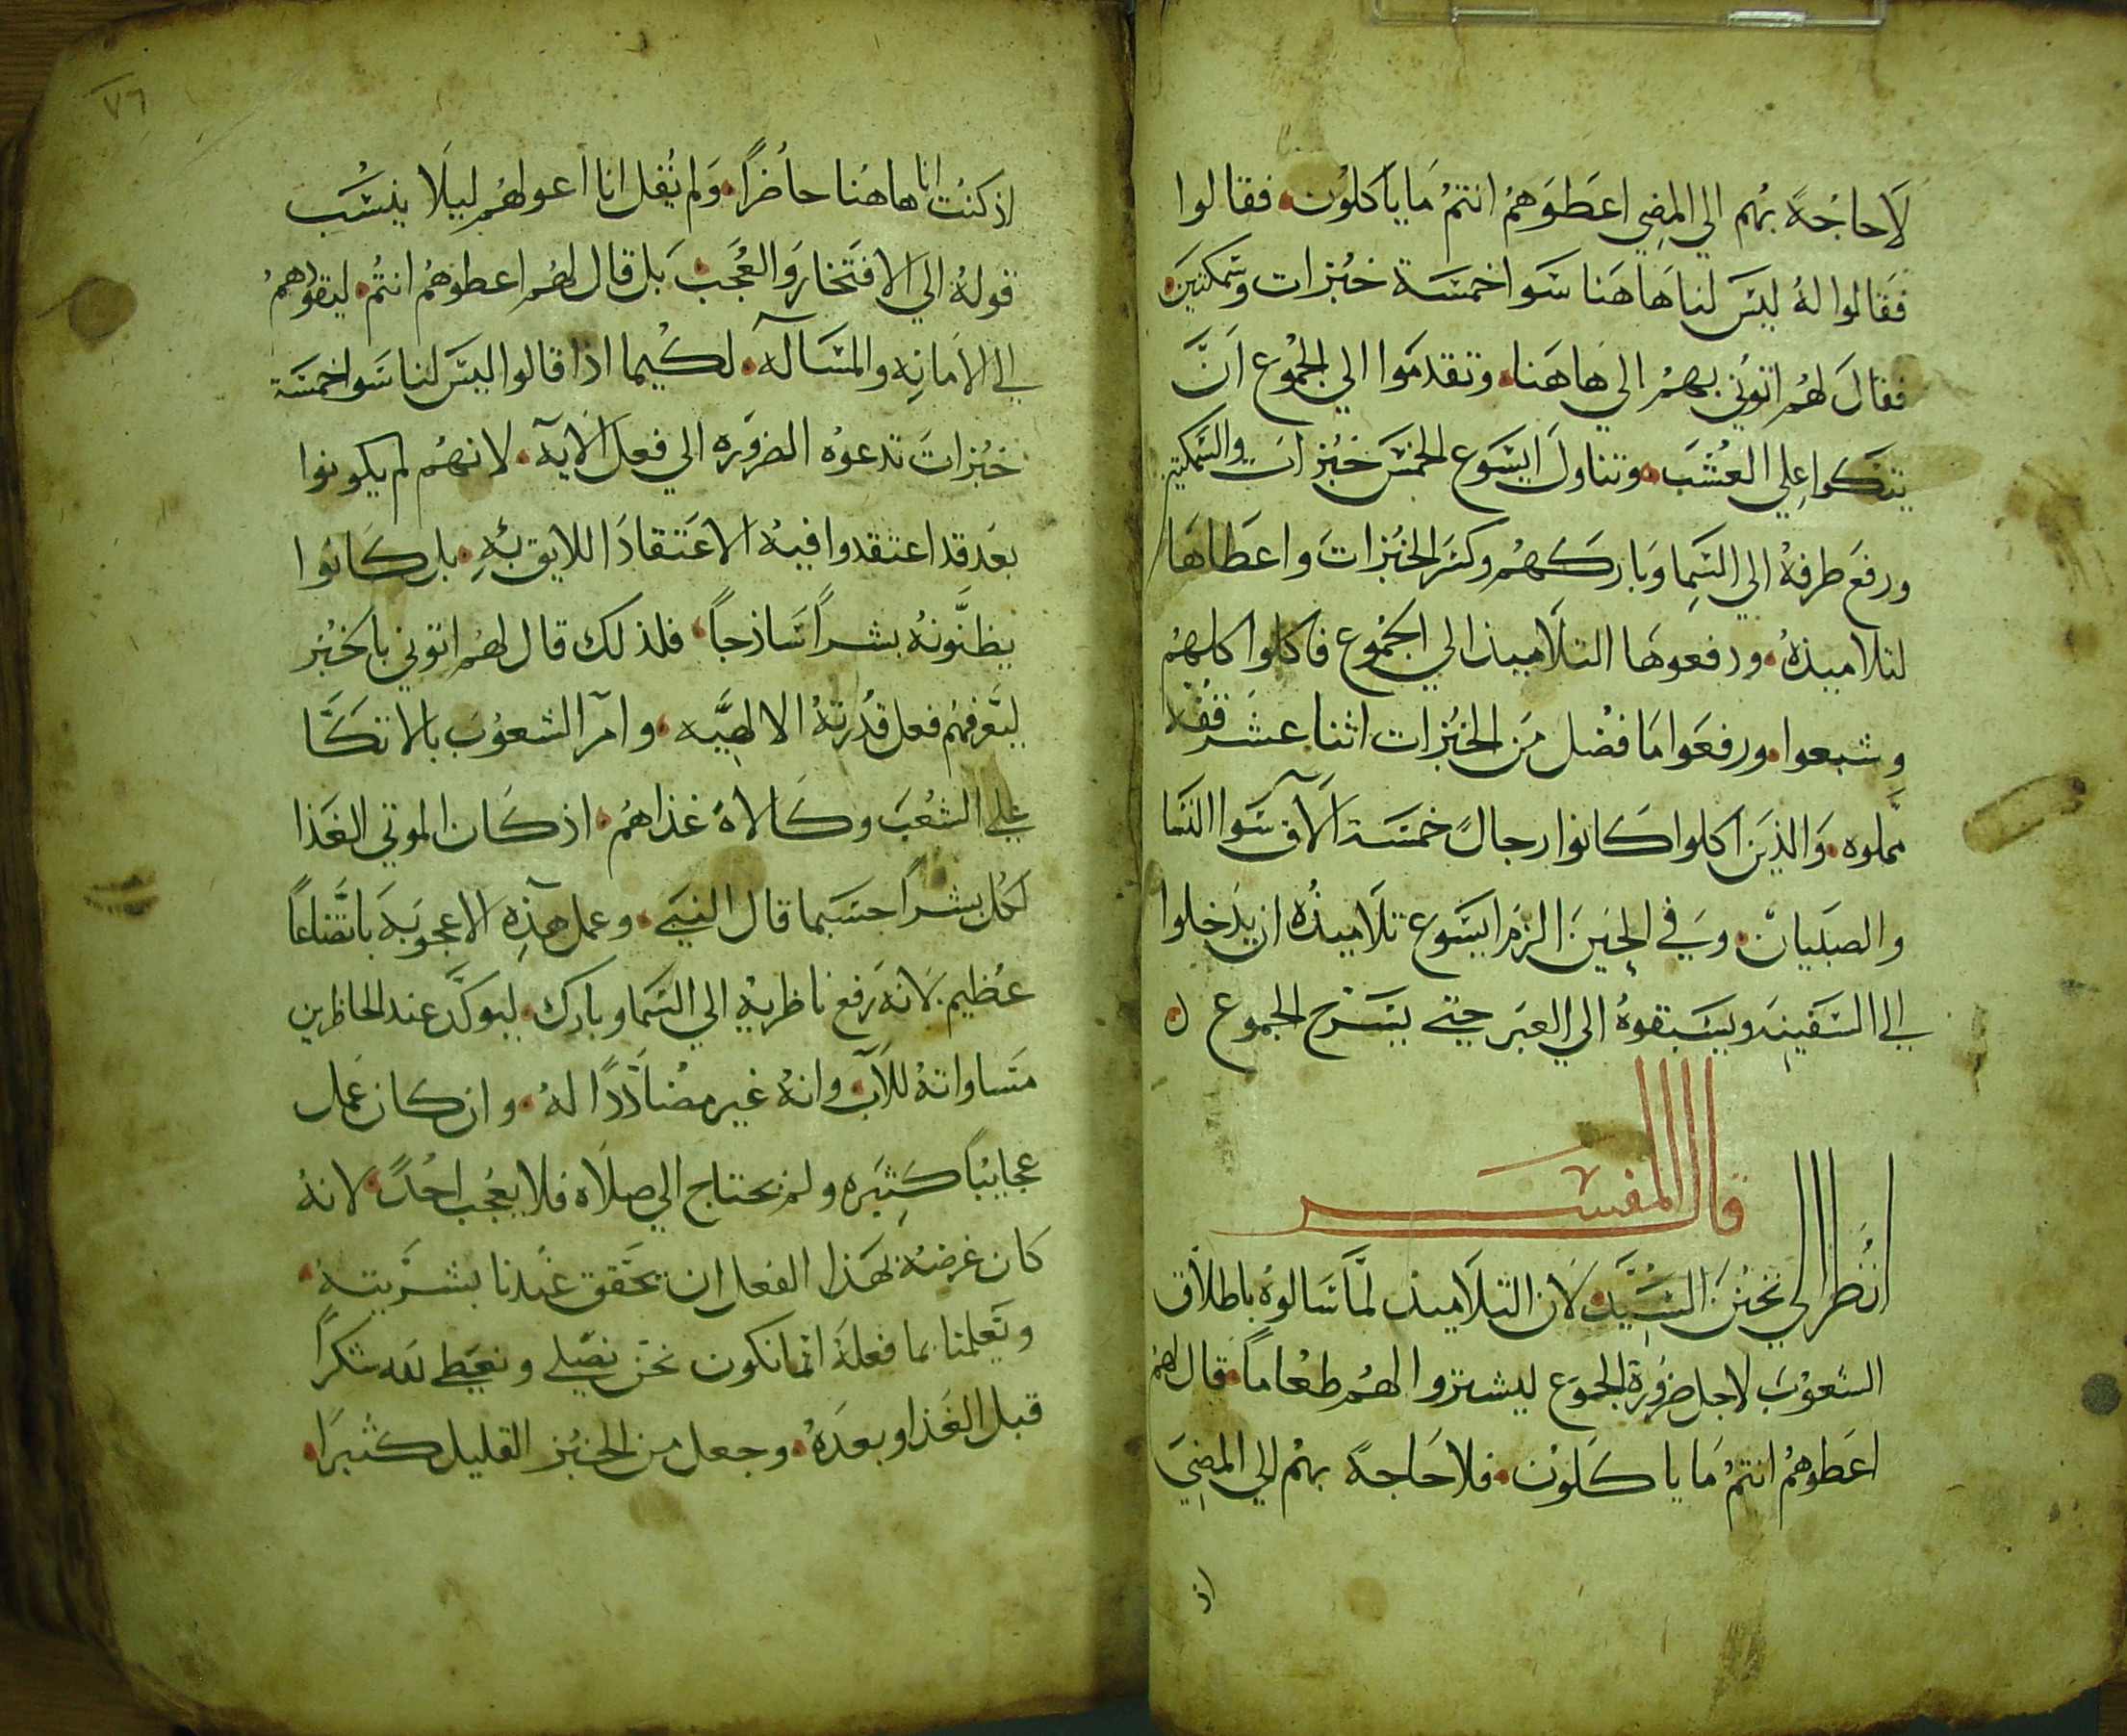 لا حاجة بهم الي المضي اعطوهم انتم ما ياكلون فقالوا
فقالوا له ليس لنا هاهنا سوا خمسة خبزات وسمكتين
فقال لهم اتوني بهم الي هاهنا وتقدموا الي الجموع ان
يتكوا علي العشب وتناول ايسوع الخمس خبزات والسمكتين
ورفع طرفه الي السما وباركهم وكسر الخبزات واعطاها
لتلاميذه ورفعوها التلاميذ الي الجموع فاكلوا كلهم
وشبعوا ورفعوا ما فضل من الخبزات اثنا عشر قفه
مملوه والذين اكلوا كانوا رجال خمسة الاف سوا النسا
والصبيان وفي الحين الزم ايسوع تلاميذه ان يدخلوا
الي السفينه ويسبقوه الي العبر حتي يسرح الجموع
قال المفسر
انظر الي تحنن السيد لان التلاميذ لما سالوه باطلاق
الشعوب لاجل ضرورة الجموع ليشتروا لهم طعاماً قال لهم
اعطوهم انتم ما ياكلون فلا حاجة بهم الي المضي
اذ
٧٦
اذ كنت انا هاهنا حاضراً ولم يقل انا اعولهم ليلا ينسب
قوله الي الافتخار والعجب بل قال لهم اعطوهم انتم ليقوهم
الي الامانه والمسآله لكيما اذا قالوا ليس لنا سوا خمسة
خبزات تدعوه الضروره الي فعل الآيه لانهم لم يكونوا
بعد قد اعتقدوا فيه الاعتقاد اللايق به بل كانوا
يظنونه بشراً ساذجاً فلذلك قال لهم اتوني بالخبز
ليعرفهم فعل قدرته الالهيه وامر الشعوب بالاتكا
علي العشب وكالاة غذاهم اذ كان الموتي الغذا
لكل بشراً حسبما قال النبي وعمل هذه الاعجوبه باتضاعاً
عظيم لانه رفع ناظريه الي السما وبارك ليوكد عند الحاظرين
مساواته للآب وانه غير مضادداً له وان كان عمل
عجايباً كثيره ولم يحتاج الي صلاه فلا يعجب احدً لانه
كان غرضه بهذا الفعل ان يحقق عندنا بشريته
ويعلمنا بما فعله انما نكون نحن نصلي ونعطي لله شكراً
قبل الغذا وبعده وجعل من الخبز القليل كثيراً